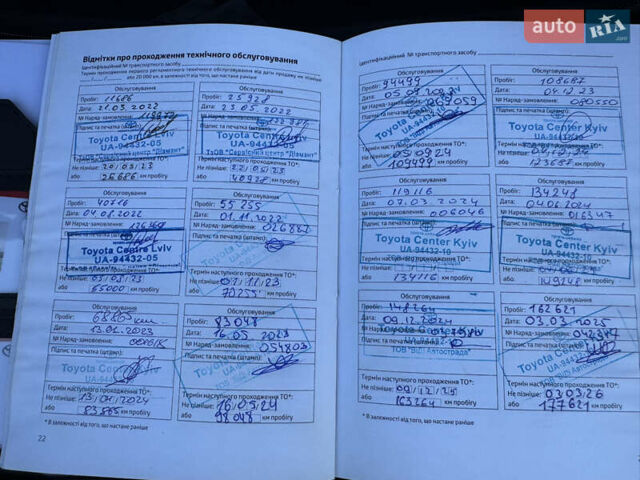 auto RIA.com
Відмітки про проходження технічного обслуговування
Ідентифікаційний № транспортного засобу
Термін проходження першого регламентного технічного обслуговування від дати продажу не пізніше
або 20 000 км, в залежності від того, що настане раніше
Обслуговування
Пробіг: 11686
Дата: 21.03.2022
№ Наряд-замовлення:
Підпис та печатка (штамп):
Toyota Center Lviv
UA-94432-05
Термін наступного проходження ТО*:
Не пізніше: 20/03/23
або 26686 км пробігу
Обслуговування
Пробіг: 25928
Дата: 23.05.2022
№ Наряд-замовлення:
Підпис та печатка (штамп):
Toyota Center Lviv
UA-94432-05
ТзОВ "Сервісний центр "Діамант"
Термін наступного проходження ТО*:
Не пізніше: 22/05/23
або 40928 км пробігу
Обслуговування
Пробіг: 40716
Дата: 04.08.2022
№ Наряд-замовлення:
Підпис та печатка (штамп):
Toyota Centre Lviv
UA-94432-05
Термін наступного проходження ТО*:
Не пізніше: 03/08/23
або 55000 км пробігу
Обслуговування
Пробіг: 55255
Дата: 01.11.2022
№ Наряд-замовлення:
Підпис та печатка (штамп):
Термін наступного проходження ТО*:
Не пізніше: 01/11/23
або 70255 км пробігу
Обслуговування
Пробіг:
Дата: 13.01.2023
№ Наряд-замовлення:
Підпис та печатка (штамп):
Термін наступного проходження ТО*:
Не пізніше: 13/01/2024
або км пробігу
Обслуговування
Пробіг: 83048
Дата: 16.05 2023
№ Наряд-замовлення: 054803
Підпис та печатка (штамп):
Термін наступного проходження ТО*:
Не пізніше: 16/05/24
або 98048 км пробігу
* В залежності від того, що настане раніше
22
Ідентифікаційний № транспортного засобу
Обслуговування
Пробіг: 94499
Дата: 05.09.2023
№ Наряд-замовлення:
Підпис та печатка (штамп):
Toyota Center Kyiv
UA-94432-10
Термін наступного проходження ТО*:
Не пізніше: 05/09/24
або 109499 км пробігу
Обслуговування
Пробіг: 108687
Дата: 04.12.23
№ Наряд-замовлення: 080550
Підпис та печатка (штамп):
Toyota Center Kyiv
UA-94432-10
Термін наступного проходження ТО*:
Не пізніше:
або 123687 км пробігу
Обслуговування
Пробіг: 119116
Дата: 07.03.2024
№ Наряд-замовлення: 006046
Підпис та печатка (штамп):
Toyota Center Kyiv
UA-94432-10
Термін наступного проходження ТО*:
Не пізніше:
або 134116 км пробігу
Обслуговування
Пробіг: 134248
Дата: 04.06.2024
№ Наряд-замовлення: 016347
Підпис та печатка (штамп):
Toyota Center Kyiv
UA-94432-10
Термін наступного проходження ТО*:
Не пізніше:
або 149248 км пробігу
Обслуговування
Пробіг: 148264
Дата: 09.12.2024
№ Наряд-замовлення:
Підпис та печатка (штамп):
Toyota Center Kyiv
ТОВ "ВІДІ Автострада"
Термін наступного проходження ТО*:
Не пізніше: 09/12/25
або 163264 км пробігу
Обслуговування
Пробіг: 162621
Дата: 03.03.2025
№ Наряд-замовлення:
Підпис та печатка (штамп):
Toyota Center Kyiv
UA-94432-10
ТОВ "ВІДІ Автострада"
Термін наступного проходження ТО*:
Не пізніше: 03.03.26
або 177621 км пробігу
* В залежності від того, що настане раніше